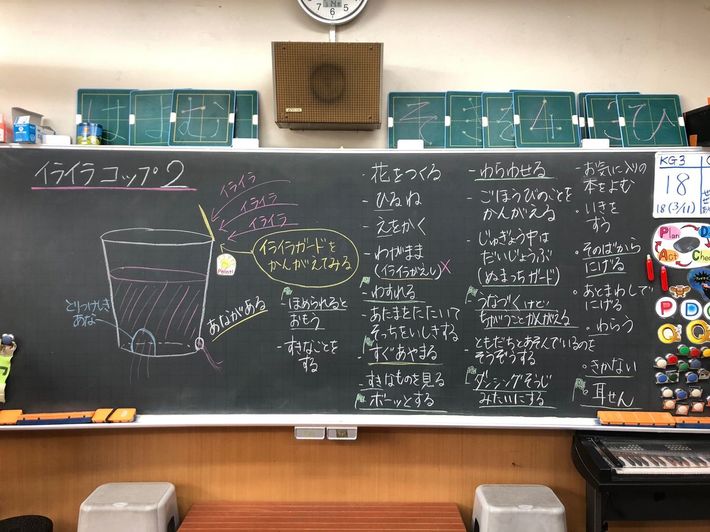 は
む
そ
4
ひ
イライラコップ2
イライラ
イライラ
イライラ
Point!
イライラガードを
かんがえてみる
とりつけしき
あな
あながある
・ほめられると
おもう
・すきなことを
する
・花をつくる
・ひるね
・えをかく
・わがまま
(イライラがえし)×
・わすれる
・あたまをたたいて
そっちをいしきする
・すぐあやまる
・すきなものを見る
・ボーッとする
・わらわせる
・ごほうびのことを
かんがえる
・じゅぎょう中は
だいじょうぶ
(ぬまっちガード)
・うなづくけど
ちがうことかんがえる
・ともだちとあそんでいるのを
そうぞうする
・ダンシングそうじ
みたいにする
・お気に入りの
本をよむ
・いきを
すう
・そのばから
にげる
・あとまわしで
にげる
・わらう
・きかない
・耳せん
KG3
18
18(3/11)
Plan
Act
P
D